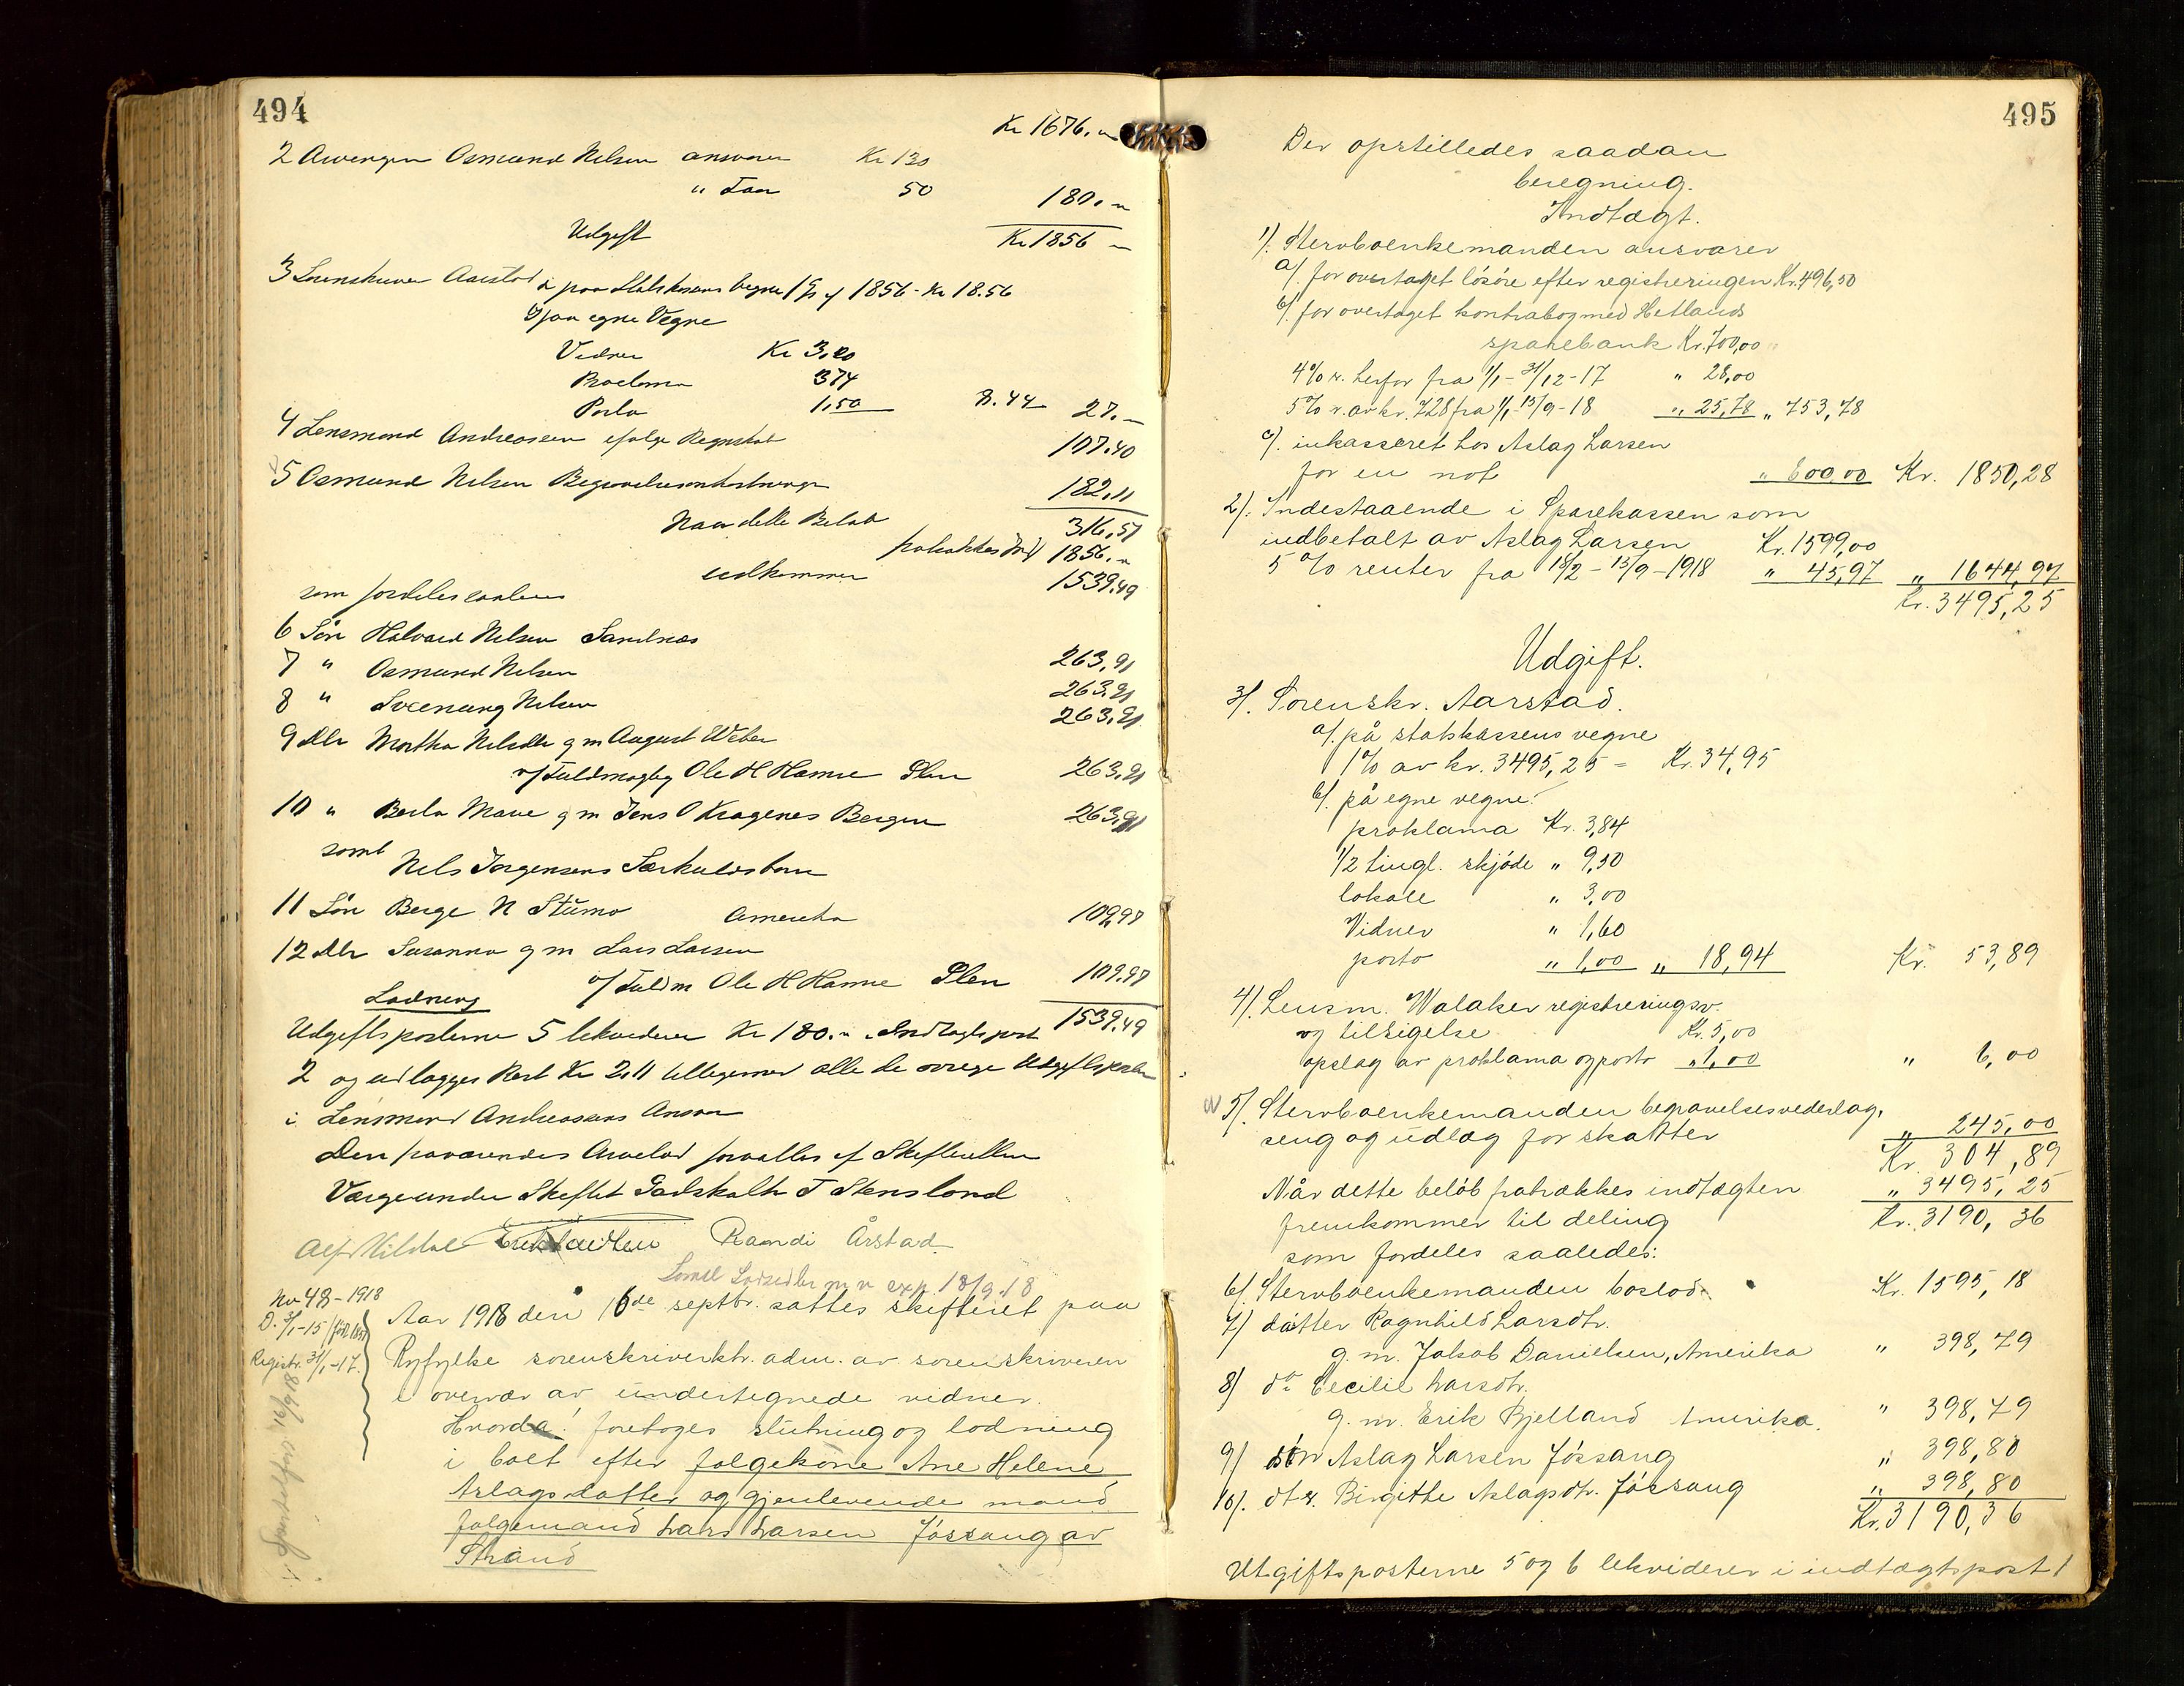 494
Kr 1676.„
2 Arvingen Osmund Nelsen ansvarer Kr 130
„ Laan 50 180.„
Udgift Kr 1856 „
3 Sorenskriver Aarstad a paa Statskassens vegne 1% af 1856 - Kr 18.56
b paa egne Vegne
Vidner Kr 3,20
Proclama 3 74
Porto 1,50 8.44 27.„
4 Lensmand Andreassen ifølge Regnskab 107.40
5 Osmund Nelsen Begravelsesomkostninger 182,11
Naar dette Beløb 316,51
fratrækkes Indt 1856.„
udkommer 1539,49
som fordeles saaledes
6 Søn Halvard Nelsen Sandnæs 263,91
7 „ Osmund Nelsen 263,91
8 „ Sveenung Nelsen 263,91
9 Dtr Martha Nelsdtr g m August Weber
v/ Fuldmægtig Ole H Hamre Slen 263,91
10 „ Berta Marie g m Jens O Kragenes Bergen 263,91
samt
Nels Jørgensens Særkuldsbarn
11 Søn Berge N Stumo Amerika 109,97
12 Dtr Susanna g m Lars Larsen
v/ Fuldm Ole H Hamre Slen 109.97
Lodning 1539,49
Udgiftsposterne 5 lekviderer Kr 180.„ i Indtægts post
2 og udlægges Rest Kr 2,11 tillegemed alle de øvrige Udgiftsposter
i Lensmand Andreassens Ansvar
Den fraværendes Arvelod forvaltes af Skifteretten
Værge under Skiftet Godskalk T Stensland
Alf Kildal Randi Årstad
Samtl Lodsedler m v exp. 18/9 18
No 48 - 1918
D. 3/1-15
Registr. 31/1-17.
Aar 1918 den 16de septbr. sattes skifteret paa
Ryfylke sorenskriverktr. adm. av sorenskriveren
i overvær av undertegnede vidner.
Hvorda! foretoges slutning og lodning
i boet efter folgekone Ane Helene
Aslagsdatter og gjenlevende mand
folgemand Lars Larsen Jössang av
Strand
495
Der opstilledes saadan
beregning.
Indtægt.
1/. Stervboenkemanden ansvarer
a/. for overtaget lösöre efter registreringen Kr. 496,50
b/. for overtaget kontrabog med Hetlands
sparebank Kr. 700,00
4% r. herfor fra 1/1-31/12-17 „ 28,00
5% r. av kr. 728 fra 1/1-15/9-18 „ 25,78 „ 753,78
c/. inkasseret hos Aslag Larsen
for en not „ 600,00 Kr. 1850,28
2/. Indestaaende i Sparekassen som
indbetalt av Aslag Larsen Kr. 1599,00
5 % renter fra 18/2 - 15/9 - 1918 „ 45,97 „ 1644,97
Kr. 3495,25
Udgift.
3/. Sorenskr. Aarstad.
a/. på statskassens vegne
1% av kr. 3495,25 = Kr. 34,95
b/. på egne vegne:
proklama Kr. 3,84
1/2 tingl. skjöde „ 9,50
lokale „ 3,00
Vidner „ 1,60
porto „ 1,00 „ 18,94 Kr. 53,89
4/. Lensm. Walaker registreringsv.
og tilsigelse Kr. 5,00
opslag av proklama og porto „ 1,00 „ 6,00
5/. Stervboenkemanden begravelsesvederlag,
seng og udlæg for skatter „ 245,00
Kr. 304,89
Når dette belöb fratrækkes indtægten „ 3495,25
fremkommer til deling Kr. 3190,36
som fordeles saaledes:
6/. Stervboenkemanden boslod Kr. 1595,18
7/ datter Ragnhild Larsdtr.
g. m. Jakob Danielsen, Amerika „ 398,79
8/ do Cecilie Larsdtr.
g. m. Erik Bjelland Amerika. „ 398,79
9/ sön Aslag Larsen Jössang „ 398,80
10/. dtr. Birgithe Aslagsdtr. Jössang „ 398,80
Kr. 3190,36
Utgiftsposterne 5 og 6 lekviderer i indtægtspost 1